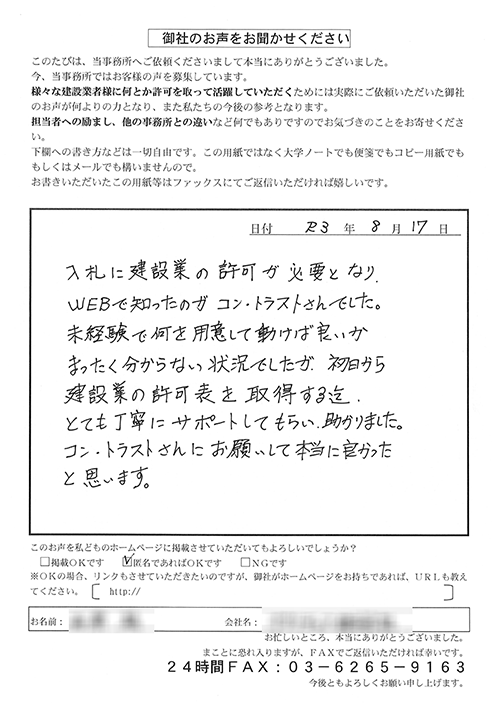 御社のお声をお聞かせください
このたびは、当事務所へご依頼くださいまして本当にありがとうございました。
今、当事務所ではお客様の声を募集しています。
様々な建設業者様に何とか許可を取って活躍していただくためには実際にご依頼いただいた御社
のお声が何よりの力となり、また私たちの今後の参考となります。
担当者への励まし、他の事務所との違いなど何でもありですのでお気づきのことをお寄せくださ
い。
下欄への書き方などは一切自由です。この用紙ではなく大学ノートでも便箋でもコピー用紙でも
もしくはメールでも構いませんので。
お書きいただいたこの用紙等はファックスにてご返信いただければ嬉しいです。
日付 R3 年 8 月 17 日
入札に建設業の許可が必要となり、
WEBで知ったのが コン・トラストさんでした。
未経験で何を用意して動けば良いか
まったく分からない状況でしたが、初日から
建設業の許可表を取得する迄、
とても丁寧にサポートしてもらい、助かりました。
コン・トラストさんにお願いして本当に良かった
と思います。
このお声を私どものホームページに掲載させていただいてもよろしいでしょうか？
□掲載ＯＫです ☑匿名であればＯＫです □ＮＧです
※ＯＫの場合、リンクもさせていただきたいのですが、御社がホームページをお持ちであれば、ＵＲＬも教え
てください。〔 http:// 〕
お名前： 会社名：
お忙しいところ、本当にありがとうございました。
まことに恐れ入りますが、ＦＡＸでご返信いただければ幸いです。
２４時間ＦＡＸ：０３－６２６５－９１６３
今後ともよろしくお願い申し上げます。